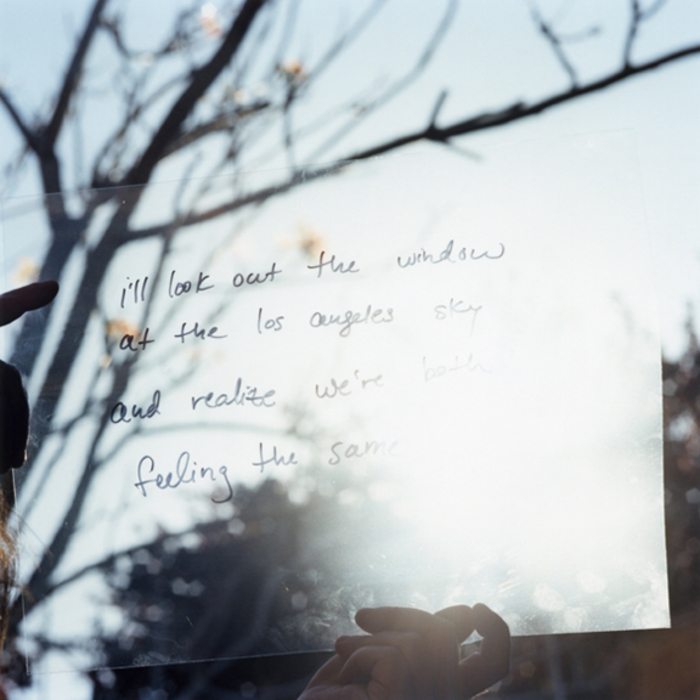 i'll look out the window
at the los angeles sky
and realize we're both
feeling the same